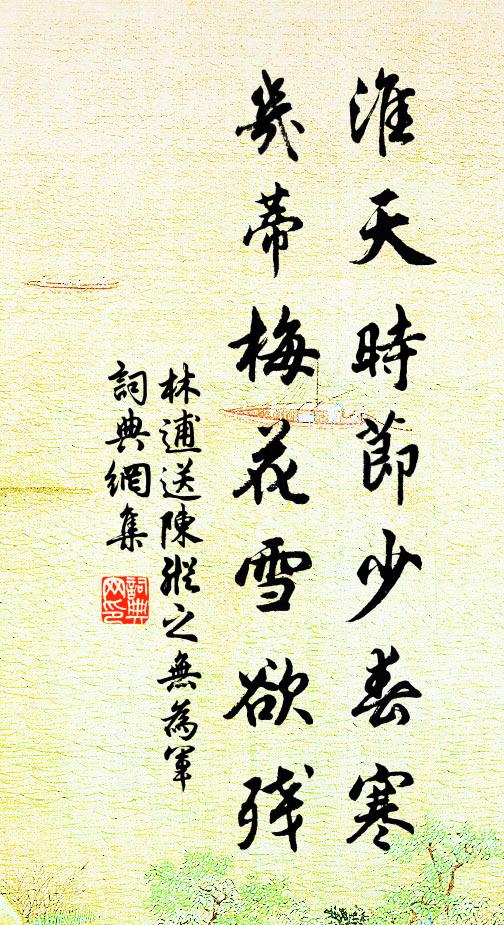 淮天時節少春寒
幾蒂梅花雪欲残
林逋送陳縱之無為軍
詞典網集
詞典
网印